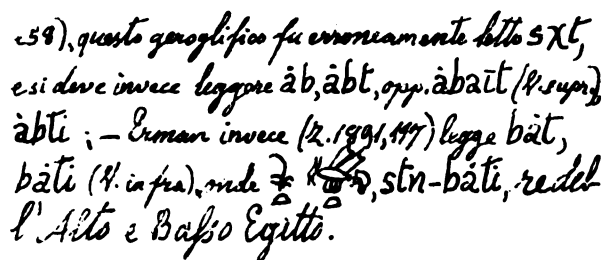 158), questo geroglifico fu erroneamente letto sχt,
e si deve invece leggere ȧb, ȧbt, opp. ȧbaït (V. supra),
ȧbti ; — Erman invece (Z. 1891, 117) legge bȧt,
bȧti (V. infra), onde , stn-bȧti, re del-
l'Alto e Basso Egitto.